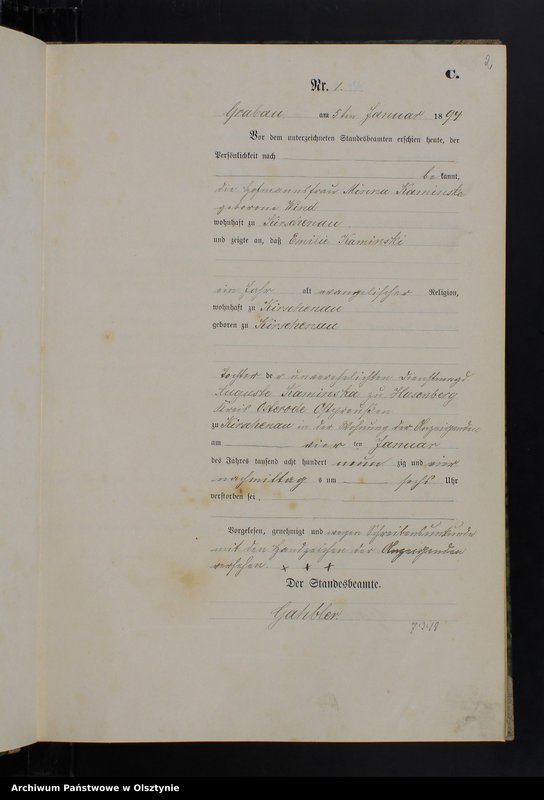 2
C.
Nr. 1.
Grabau am 5ten Januar 1894
Vor dem unterzeichneten Standesbeamten erschien heute, der
Persönlichkeit nach
be kannt,
die Hofmannsfrau Minna Kaminska
geborene Wend
wohnhaft zu Kirschenau
und zeigte an, daß Emilie Kaminski
ein Jahr alt evangelischer Religion,
wohnhaft zu Kirschenau
geboren zu Kirschenau
Tochter der unverehelichten Dienstmagd
Auguste Kaminska zu Hasenberg
Kreis Osterode Ostpreußen
zu Kirschenau in der Wohnung der Anzeigenden
am vier ten Januar
des Jahres tausend acht hundert neun zig und vier
nachmittag s um sechs Uhr
verstorben sei.
Vorgelesen, genehmigt und wegen Schreibensunkunde
mit den Handzeichen der Anzeigenden
versehen. + + +
Der Standesbeamte.
7.3.18
Archiwum Państwowe w Olsztynie